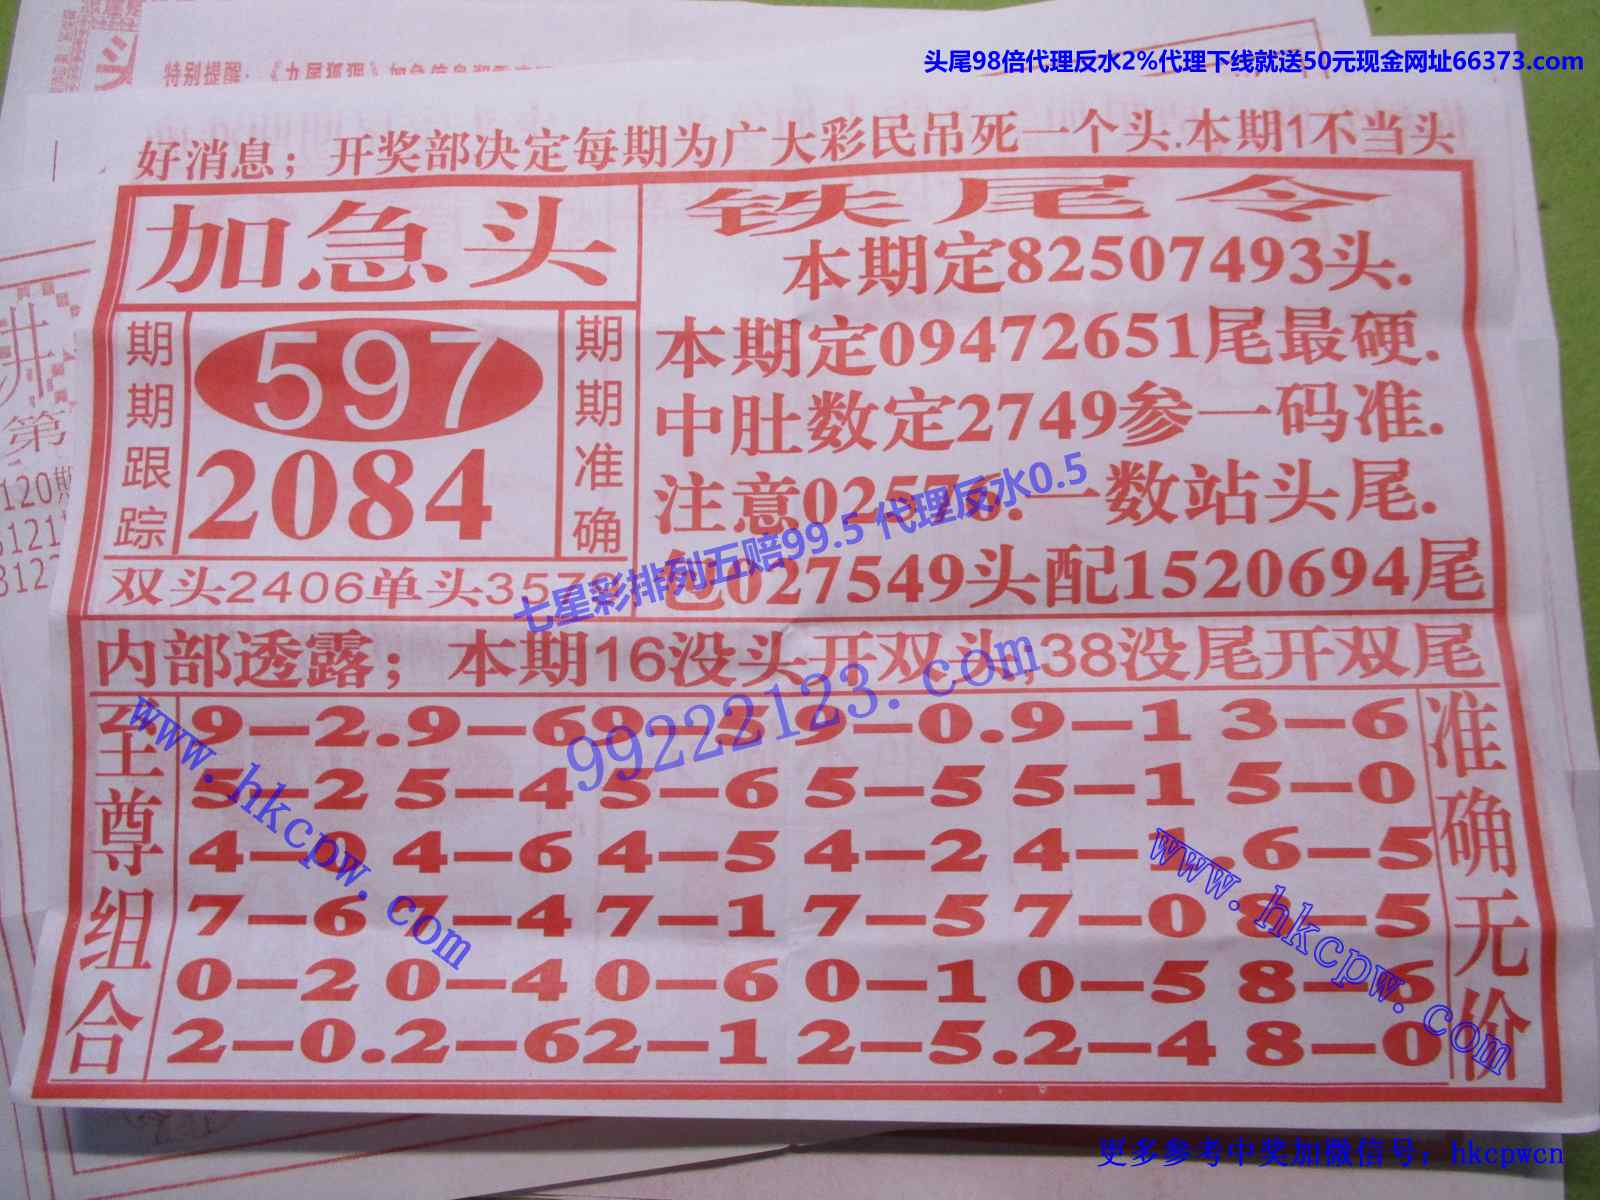 头尾98倍代理反水2%代理下线就送50元现金网址66373.com
特别提醒:《九尾狐狸》加急信息
好消息；开奖部决定每期为广大彩民吊死一个头.本期1不当头
加急头
铁尾令
本期定82507493头.
期期跟踪
597
2084
期期准确
本期定09472651尾最硬.
中肚数定2749参一码准.
注意02576.一数站头尾.
双头2406单头357
包027549头配1520694尾
七星彩排列五赔99.5 代理反水0.5
内部透露；本期16没头开双头;38没尾开双尾
99222123.com
至尊组合
9—2.9—6 9—5 9—0.9—1 3—6
5—2 5—4 5—6 5—5 5—1 5—0
4—0 4—6 4—5 4—2 4—1.6—5
7—6 7—4 7—1 7—5 7—0 8—5
0—2 0—4 0—6 0—1 0—5 8—6
2—0.2—6 2—1 2—5.2—4 8—0
准确无价
www.hkcpw.com
www.hkcpw.com
第
120期
121
122
更多参考中奖加微信号：hkcpwcn